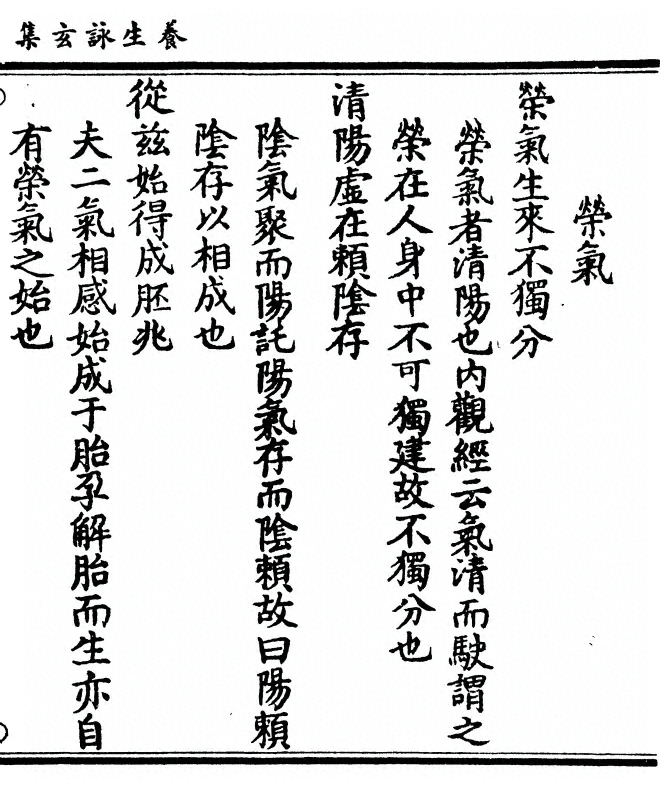 養生詠玄集
榮氣
榮氣生來不獨分
榮氣者清陽也内觀經云氣清而駛謂之
榮在人身中不可獨建故不獨分也
清陽虛在賴陰存
陰氣聚而陽託陽氣存而陰賴故曰陽賴
陰存以相成也
從兹始得成胚兆
夫二氣相感始成于胎孕解胎而生亦自
有榮氣之始也